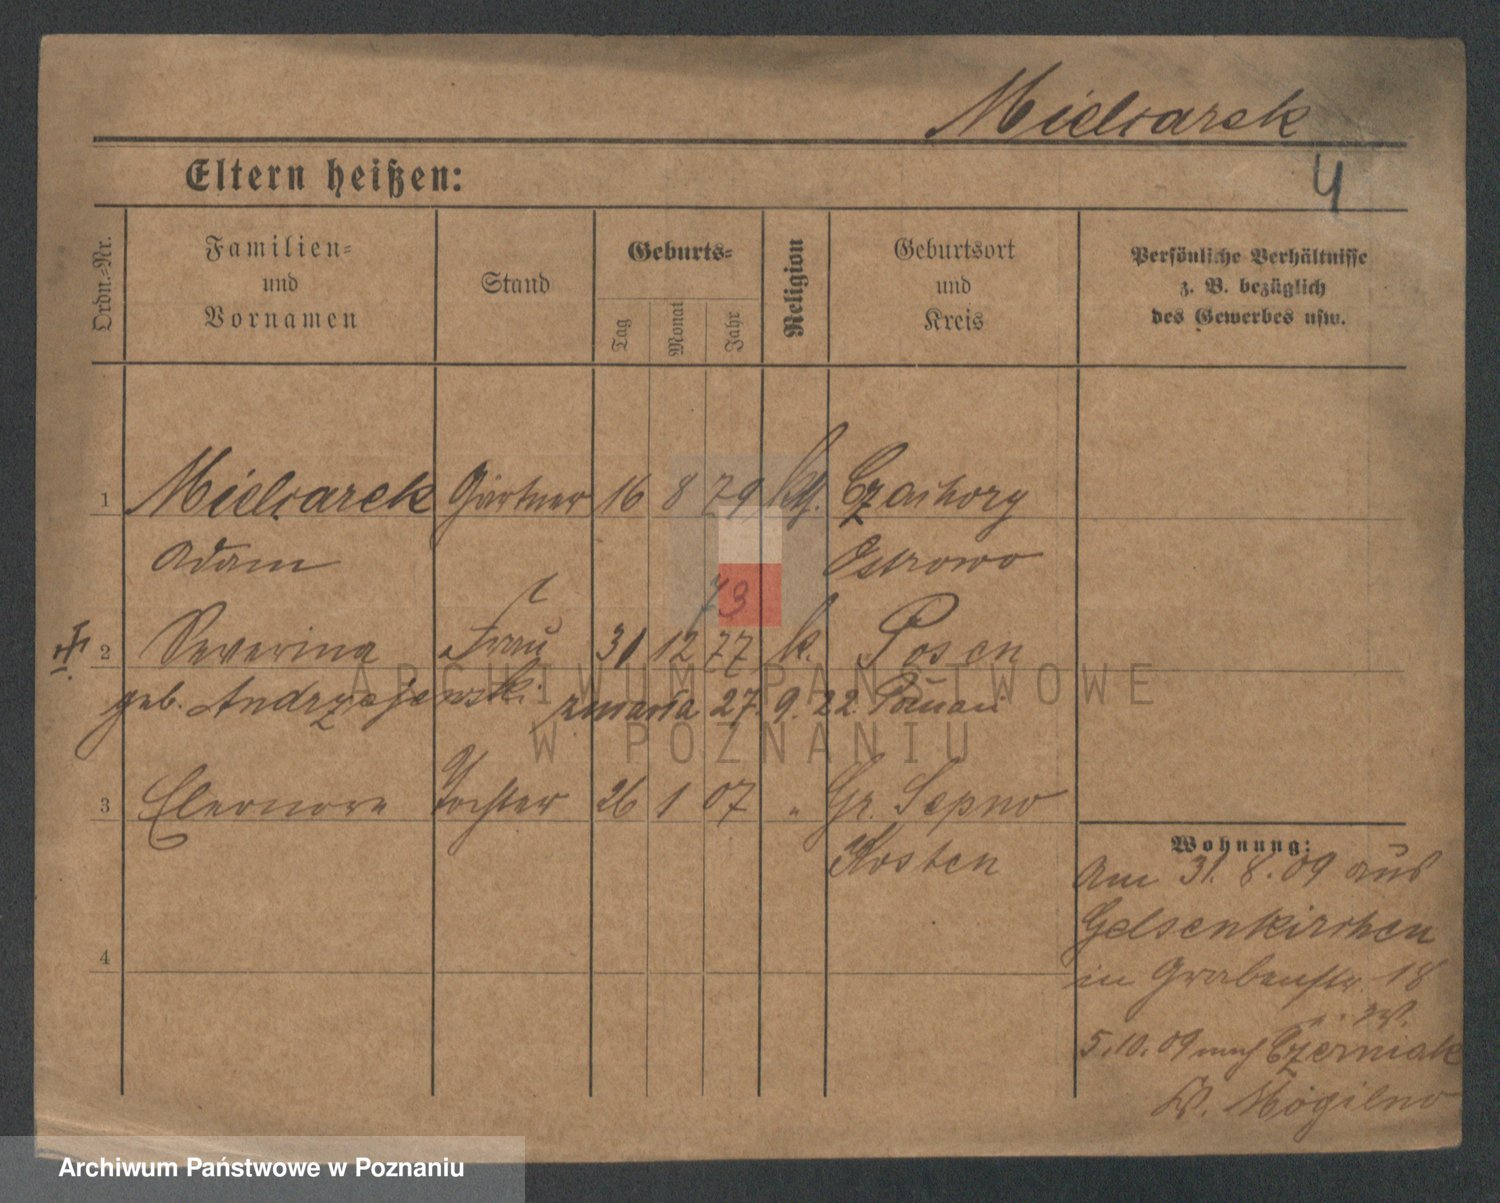 Mielcarek
4
Eltern heißen:
Ordn.-Nr.
Familien- und Vornamen
Stand
Geburts-
Tag
Monat
Jahr
Religion
Geburtsort und Kreis
Persönliche Verhältnisse z. B. bezüglich des Gewerbes usw.
1 Mielcarek Gärtner 16 8 79 kth.
Adam Ostrowo
73
2 Severina Frau 31 12 77 k. Posen
geb. Andrzejewski zmarła 27. 9. 22 Poznań
3 Eleonore Tochter 26 1 07 " Gr. Sepno
Kosten
4
Wohnung:
Am 31. 8. 09 aus
Gelsenkirchen
in Grabenstr. 18
5. 10. 09 nach Czerniak
Kr. Mogilno
ARCHIWUM PAŃSTWOWE
W POZNANIU
Archiwum Państwowe w Poznaniu